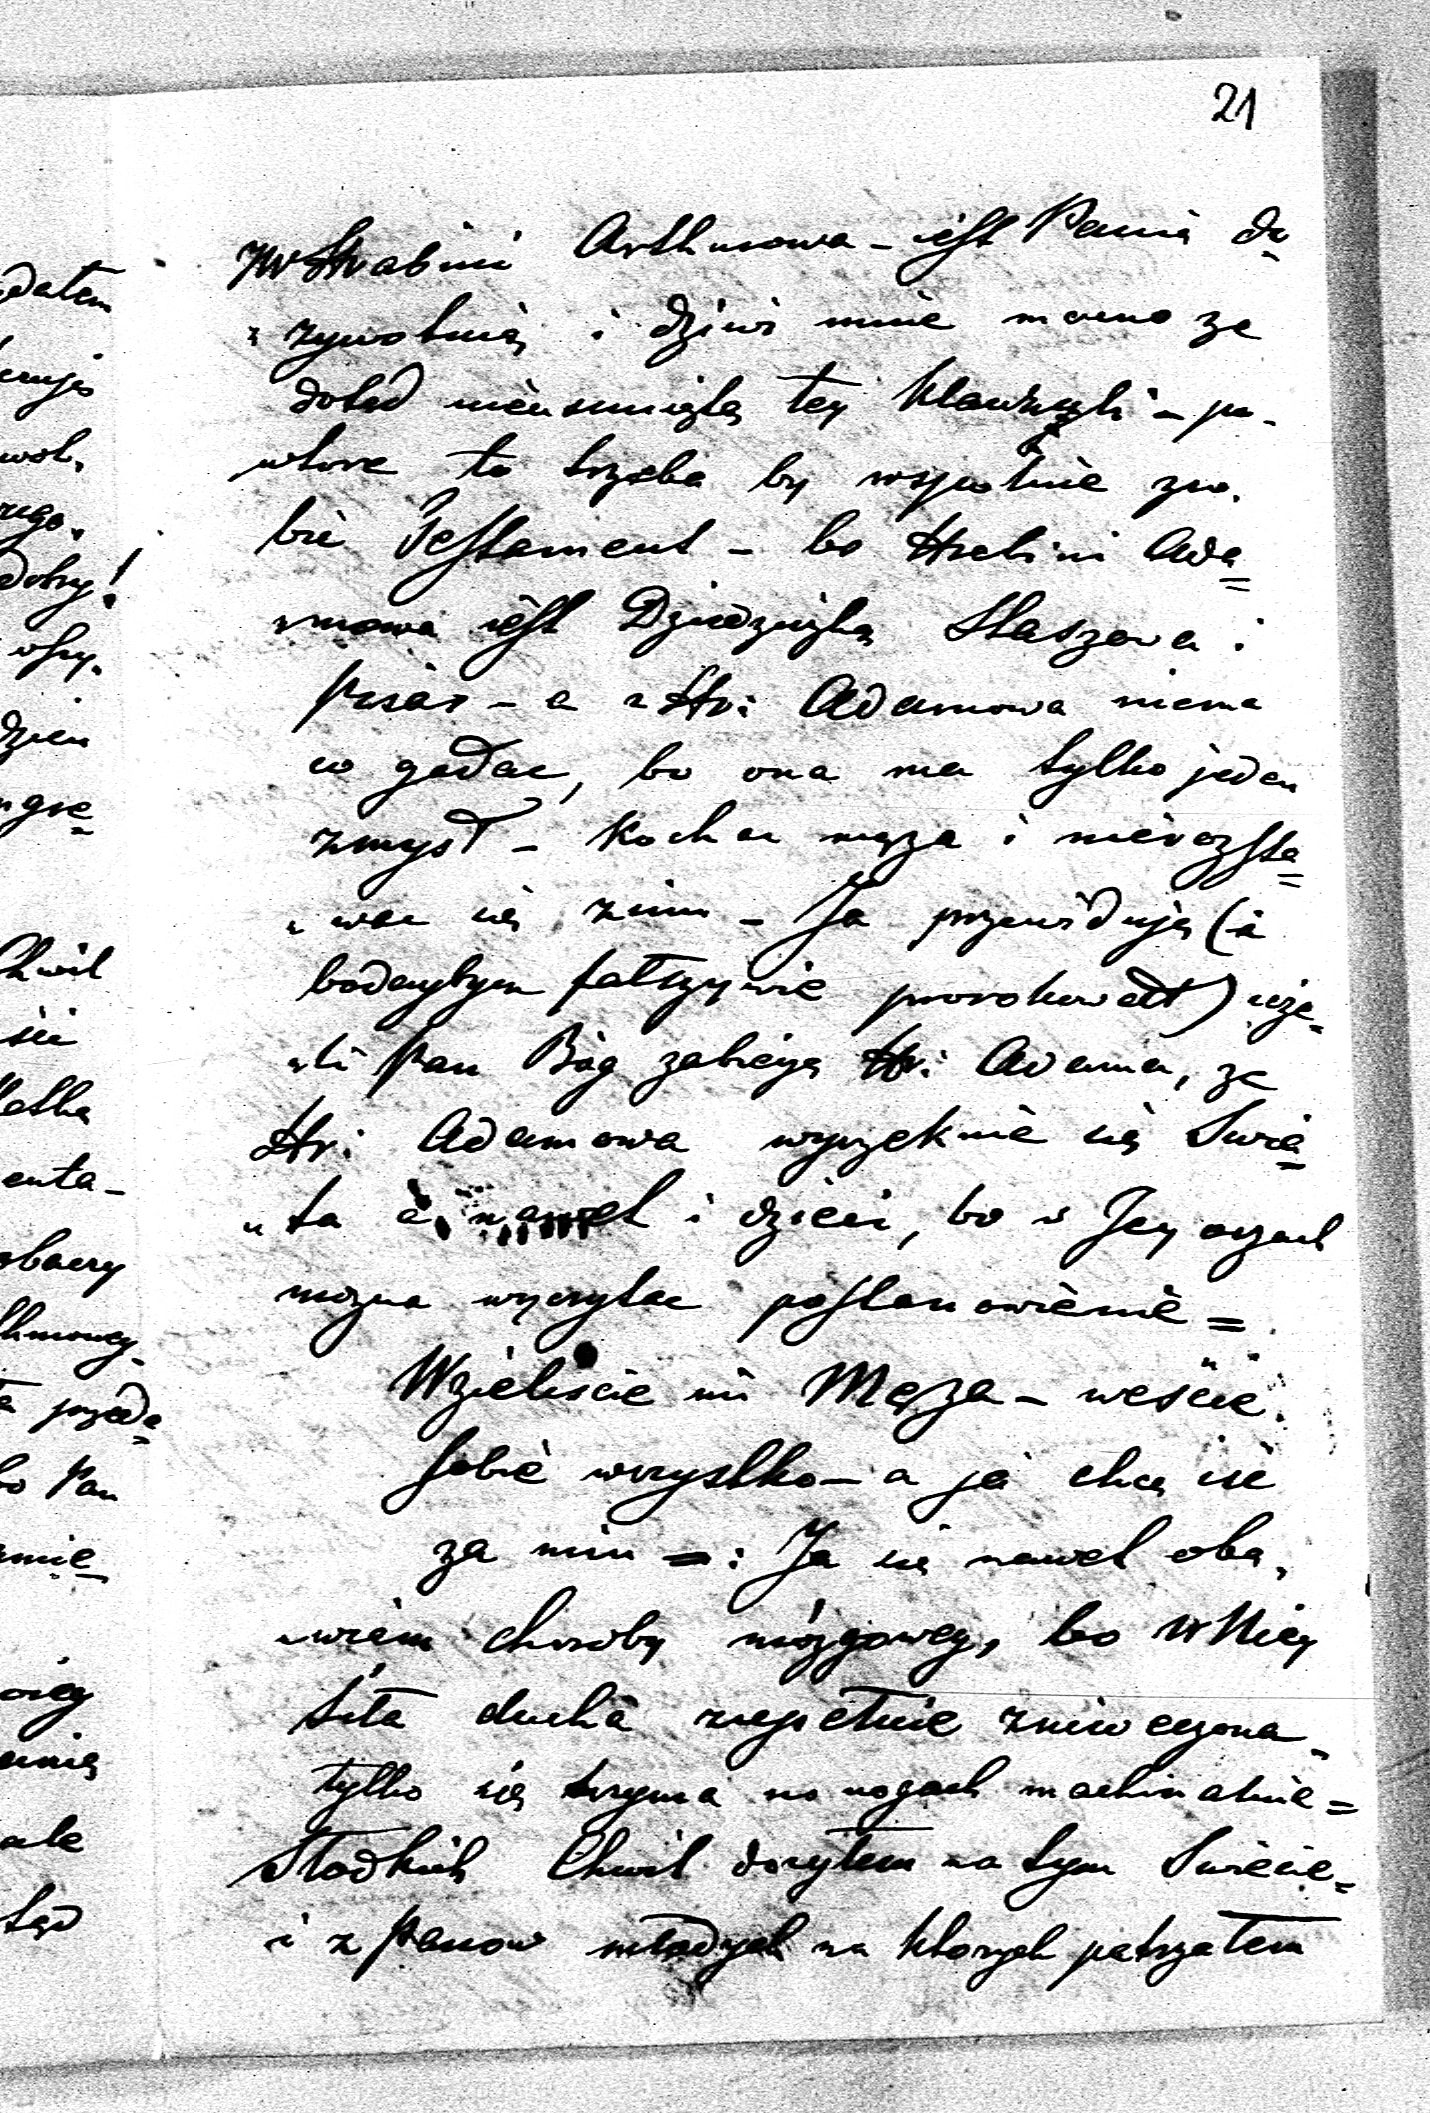 21
JW Hrabini Arthurowa - jest Panią do
żywotnią i dziwi mnie mocno że
dotąd nieusunięta tej klauzuli - po-
wtore to trzeba by wspolnie zro,
bić Testament - bo Hrabini Ada=
mowa jest Dziedziczką Staszowa i
Prsar - a z Hr: Adamowa niema
co gadac, bo ona ma tylko jeden
zmysł - Kochac męża i nierozsta=
wac się z nim - Ja przewiduję (a
bodaybym fałszywie prorokował) ieże=
li Pan Bóg zabierze Hr: Adama, ze
Hr: Adamowa wyrzeknie się Swia=
ta a nawet i dzieci, bo w Jey oczach
mozna wyczytac postanowienie =
Wzieliscie mi Męża - weście
sobie wszystko - a ja chcę iść
za nim =: Ja się nawet oba,
wiam choroby mózgowey, bo w Niey
siła ducha zupełnie zniweczona
tylko się trzyma na nogach machinalnie =
Słodkich Chwil dozyłem na tym Swiecie =
i z Panow młodych na ktorych patrzałem
datem
wol,
dobry!
dzien
Chwil
się
enta-
bo Pan
ale